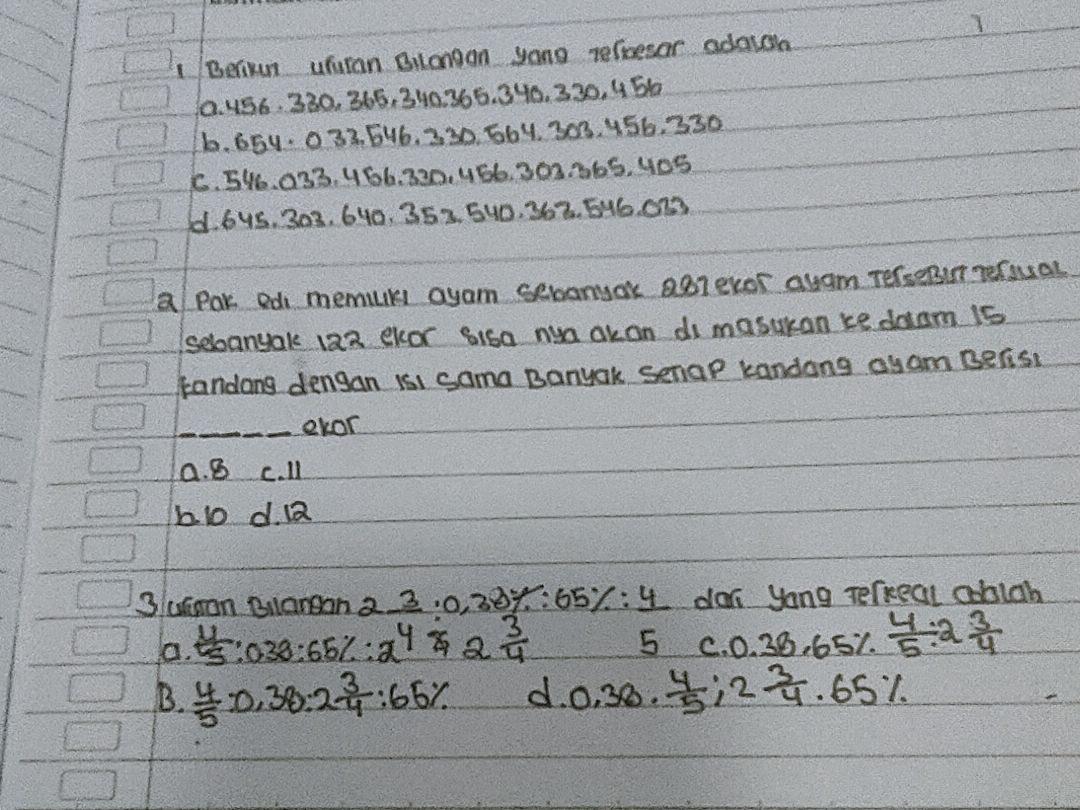 1 Berikut urutan Bilangan yang terbesar adalah
a.456.330,365,340.365.340.330,456
b.654.033.546.330.564.303.456.330
c.546.033.456.330,456.303.365.405
d.645.303.640.353.540.363.546.033
2 Pak edi memiliki ayam sebanyak 287 ekor ayam Tersebut Terjual
sebanyak 122 ekor sisa nya akan di masukan ke dalam 15
kandang dengan isi sama Banyak setiap kandang ayam Berisi
------ ekor
a.8 c.11
b.10 d.12
3 urutan Bilangan 2 3 : 0,38 : 65% : 4 dari yang Terkecil adalah
a. 4/5 : 0.38 : 65% : 2 3/4 5 c.0.38.65%. 4/5 : 2 3/4
B. 4/5 : 0,38 : 2 3/4 : 65% d.0.38. 4/5 ; 2 3/4 . 65%